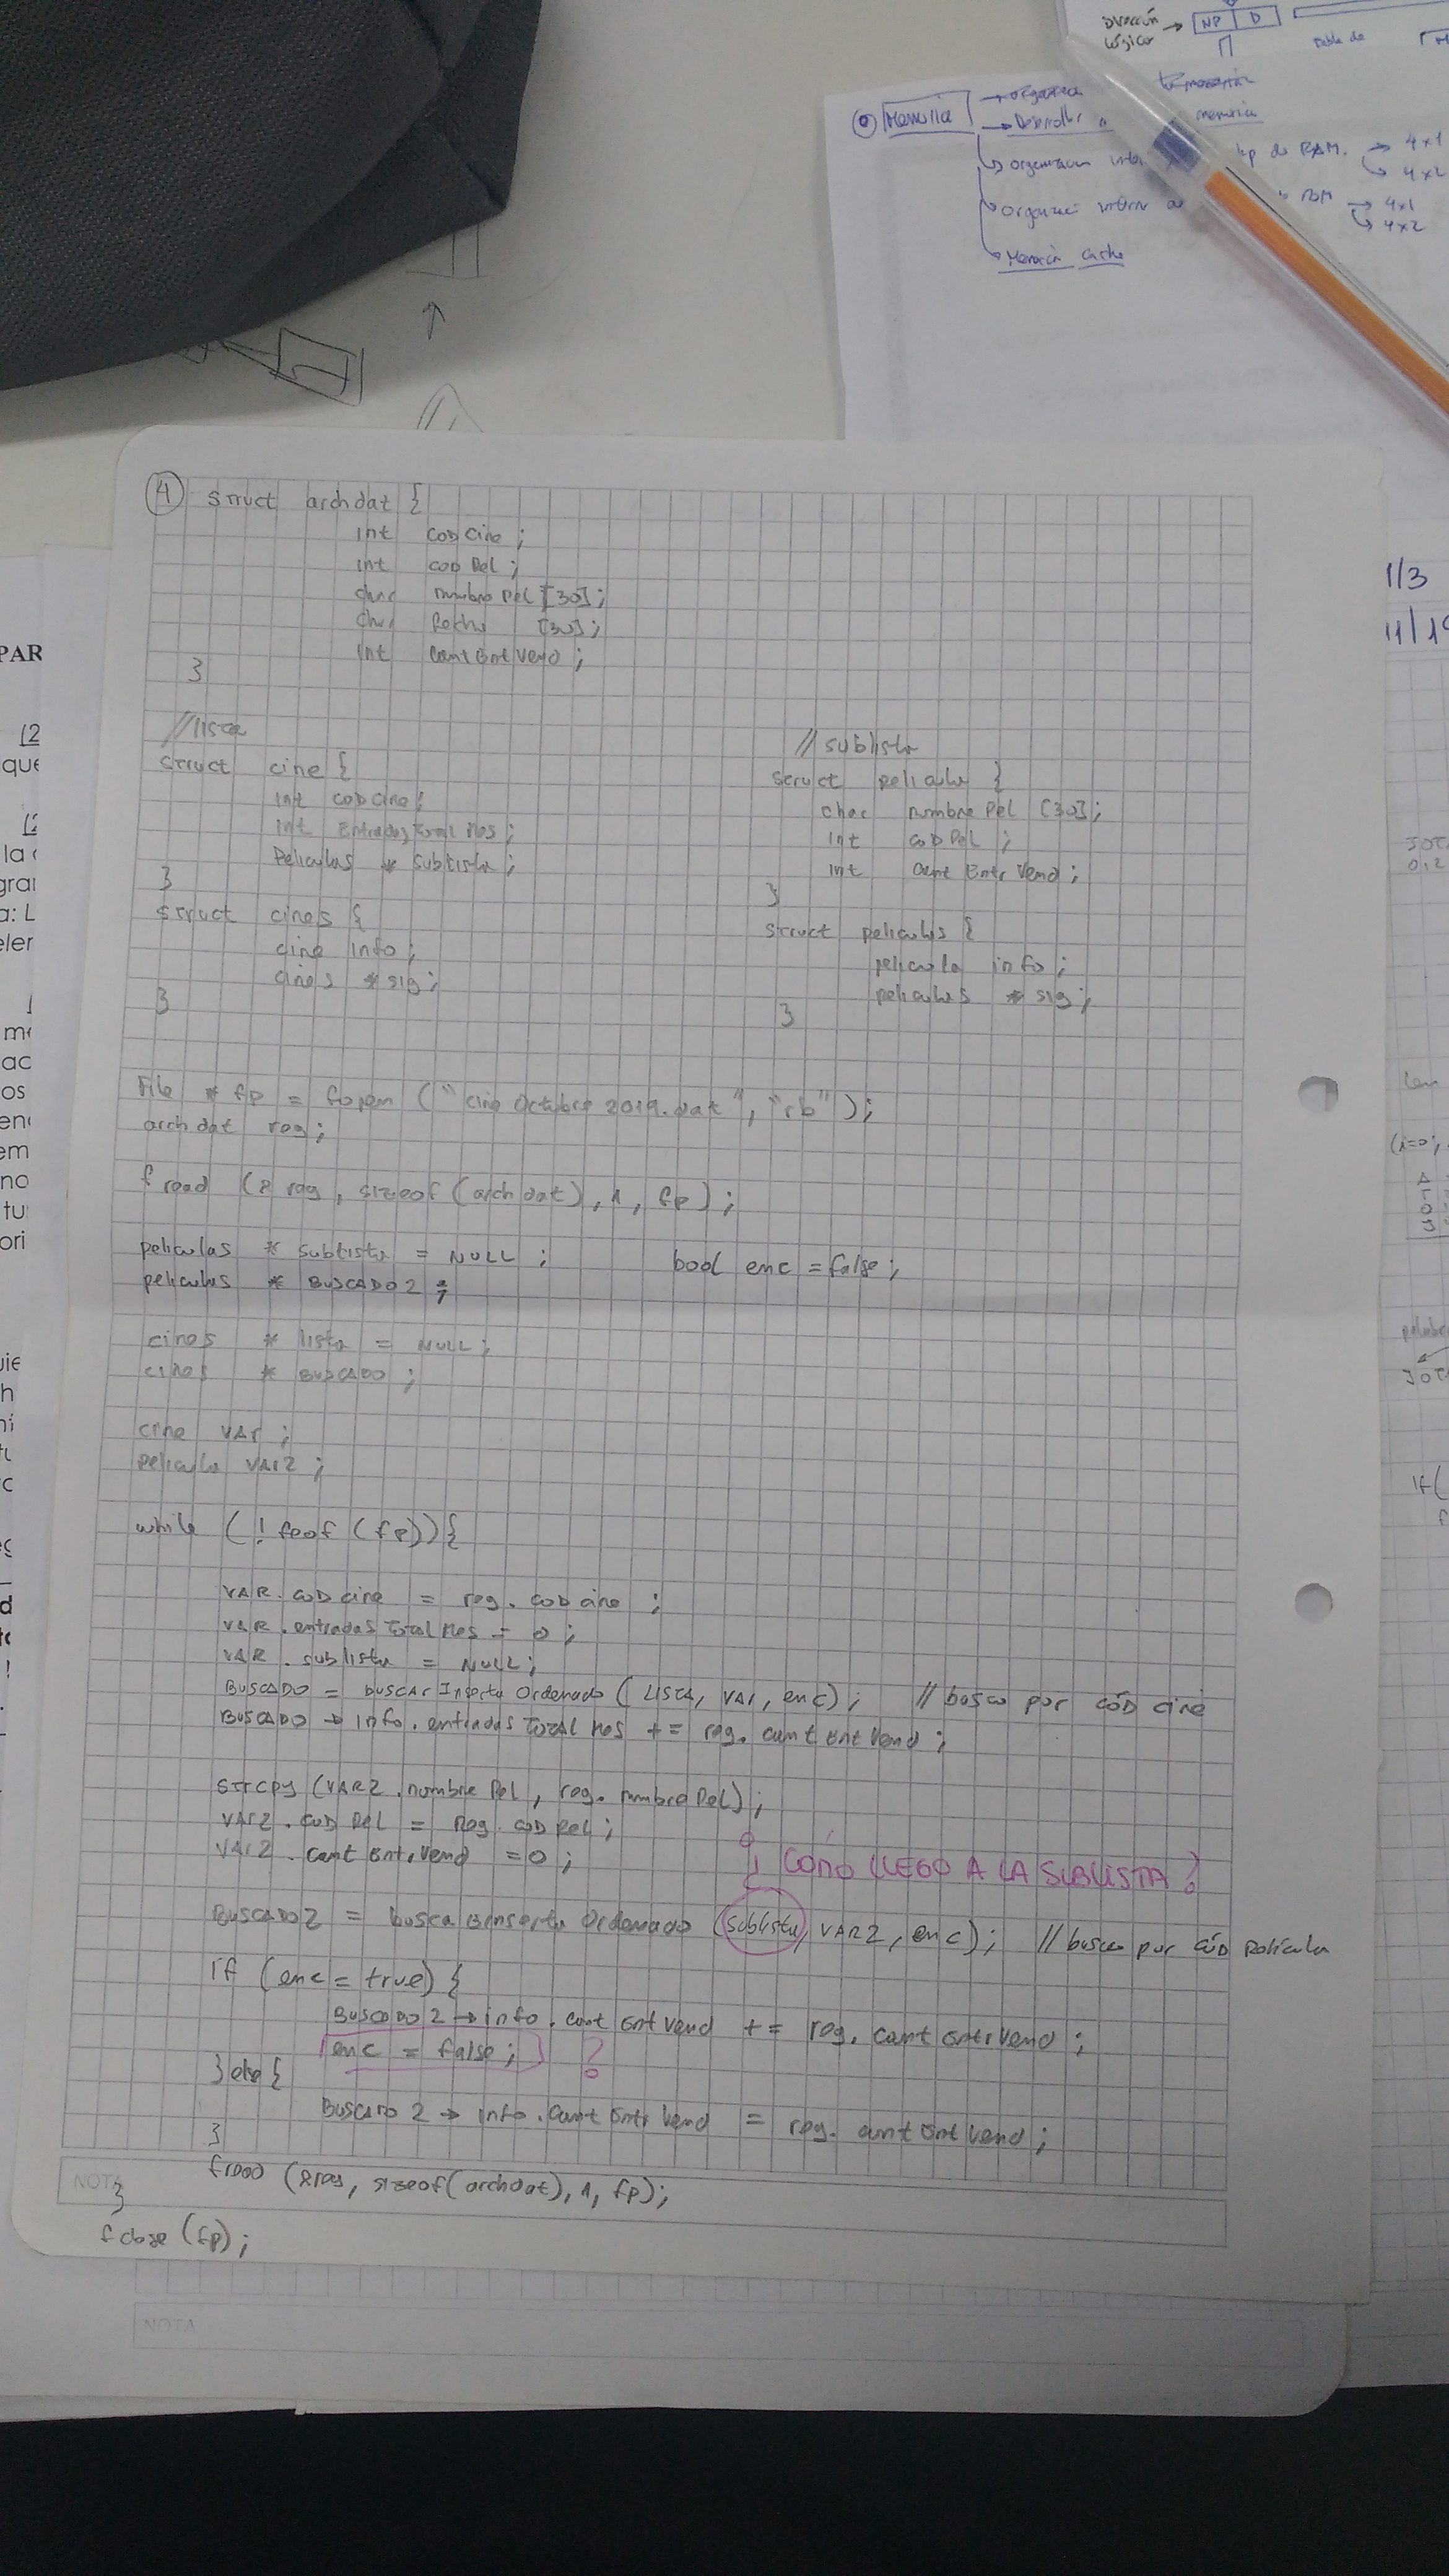 Dirección
Lógica → NP D
tabla de
Memoria
→ organiza
→ Desarrollo memoria
organización de RAM. → 4x1
4x2
organizaci interna → 4x1
4x2
Memoria cache
1/3
PAR
que
la
a: L
os
em
no
tu
ori
④ struct archdat {
int codCine ;
int codPel ;
char nombrePel [30] ;
char Fecha [30] ;
int CantEntVend ;
}
//lista
struct cine {
int codCine ;
int EntradasTotalMes ;
Peliculas * sublista ;
}
struct cines {
cine info ;
cines * sig ;
}
// sublista
struct pelicula {
char nombrePel [30] ;
int codPel ;
int CantEntrVend ;
}
struct peliculas {
pelicula info ;
peliculas * sig ;
}
File * fp = fopen ("cine Octubre 2019.dat", "rb") ;
archdat reg ;
fread (& reg, sizeof (archdat), 1, fp) ;
peliculas * sublista = NULL ; bool enc = false ;
peliculas * BUSCADO2 ;
cines * lista = NULL ;
cines * BUSCADO ;
cine VAr ;
pelicula VAr2 ;
while (! feof (fp)) {
VAR.codcine = reg.codcine ;
VAR.entradasTotalMes = 0 ;
VAR.sublista = NULL ;
BUSCADO = buscarInsertaOrdenado (LISTA, VAr, enc) ; // busco por cód cine
BUSCADO → info.entradasTotalMes += reg.cantEntVend ;
strcpy (VAR2.nombrePel, reg.nombrePel) ;
VAr2.codPel = Reg.codPel ;
VAr2.cantEntrVend = 0 ;
¿ CÓMO LLEGO A LA SUBLISTA ?
BUSCADO2 = buscaEinsertaOrdenado (sublista, VAR2, enc) ; // busco por cód película
if (enc = true) {
BUSCADO2 → info.cantEntVend += reg.cantEntrVend ;
enc = false ; ?
} else {
BUSCADO2 → info.CantEntrVend = reg.cantEntVend ;
}
fread (&reg, sizeof(archdat), 1, fp) ;
NOTA
}
fclose (fp) ;
NOTA